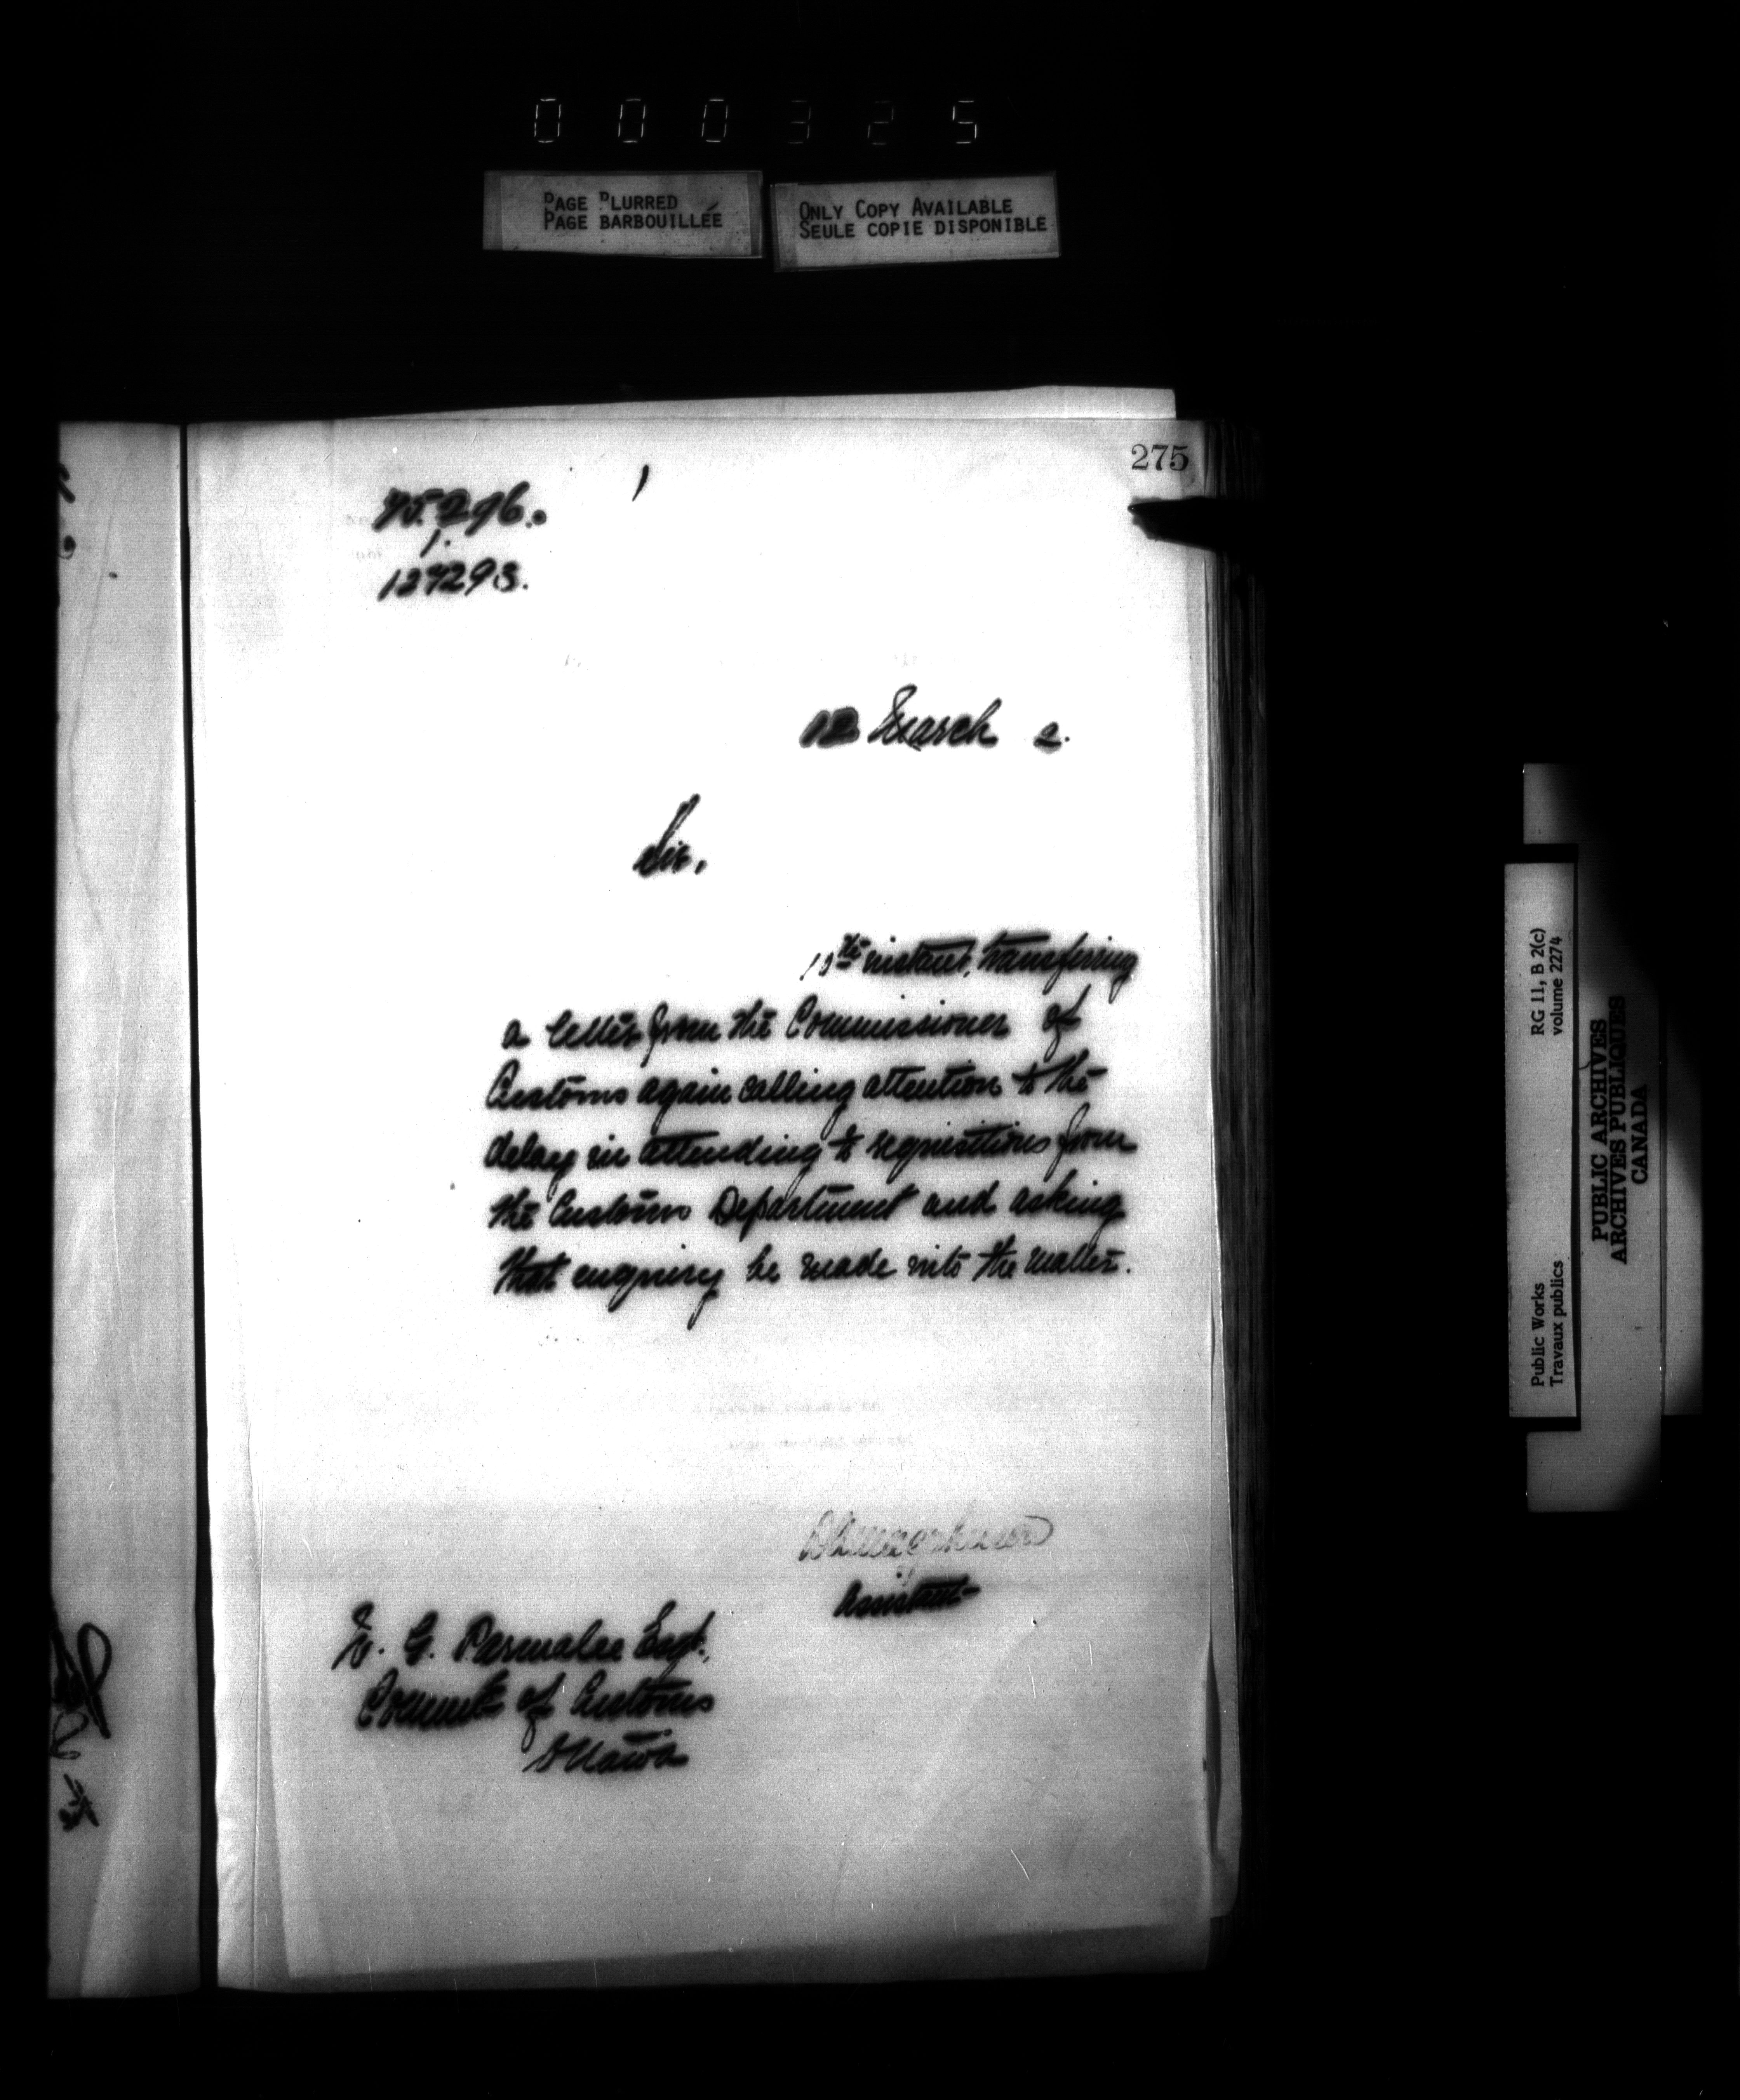 000325
PAGE BLURRED
PAGE BARBOUILLÉE
ONLY COPY AVAILABLE
SEULE COPIE DISPONIBLE
275
1.
127293.
12 March 2.
Sir,
10th instant, transferring
a letter from the Commissioner of
Customs again calling attention to the
delay in attending to requisitions from
the Customs Department and asking
that enquiry be made into the matter.
Assistant
W. G. Parmalee Esqr.,
of Customs
Ottawa
RG 11, B 2(c)
volume 2274
Public Works
Travaux publics
PUBLIC ARCHIVES
ARCHIVES PUBLIQUES
CANADA